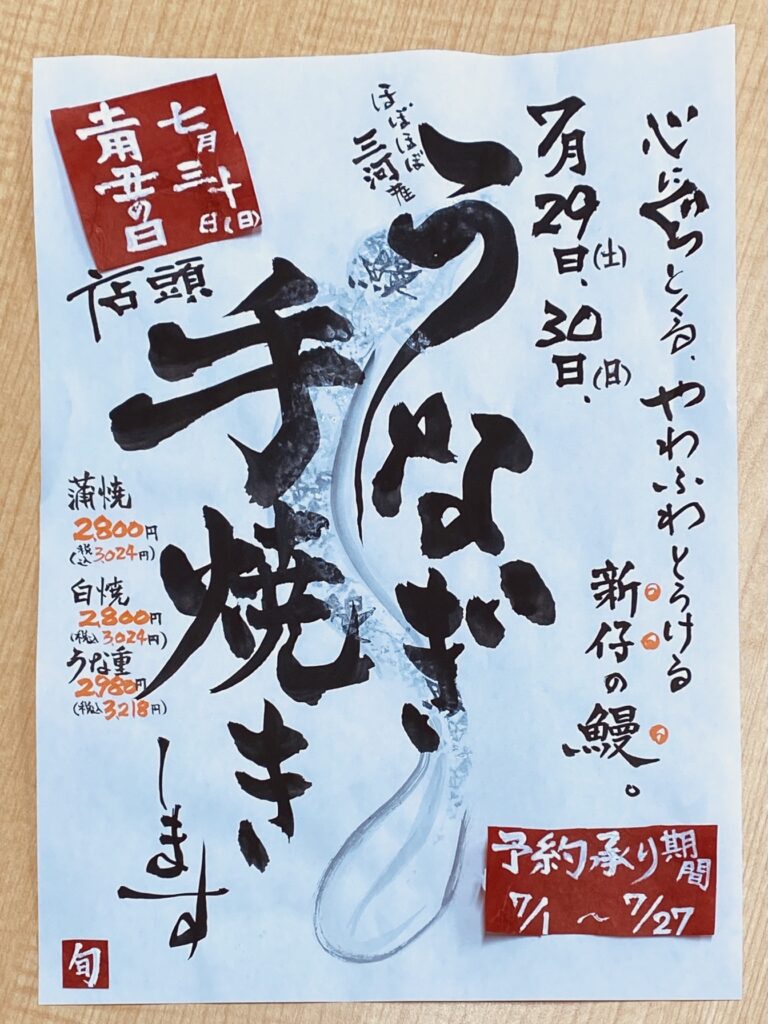 心に落ちとくる、やわふわとろける
新仔の鰻。
7月29日(土)、30日(日)、
ほぼほぼ三河産
うなぎ、
鰻
手焼き
します
店頭
七月三十日(日)
土用丑の日
蒲焼
2,800円
(税込3,024円)
白焼
2,800円
(税込3,024円)
うな重
2,980円
(税込3,218円)
予約承り期間
7/1～7/27
旬